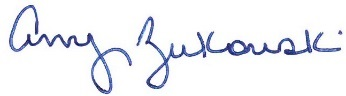 Amy Zukowski